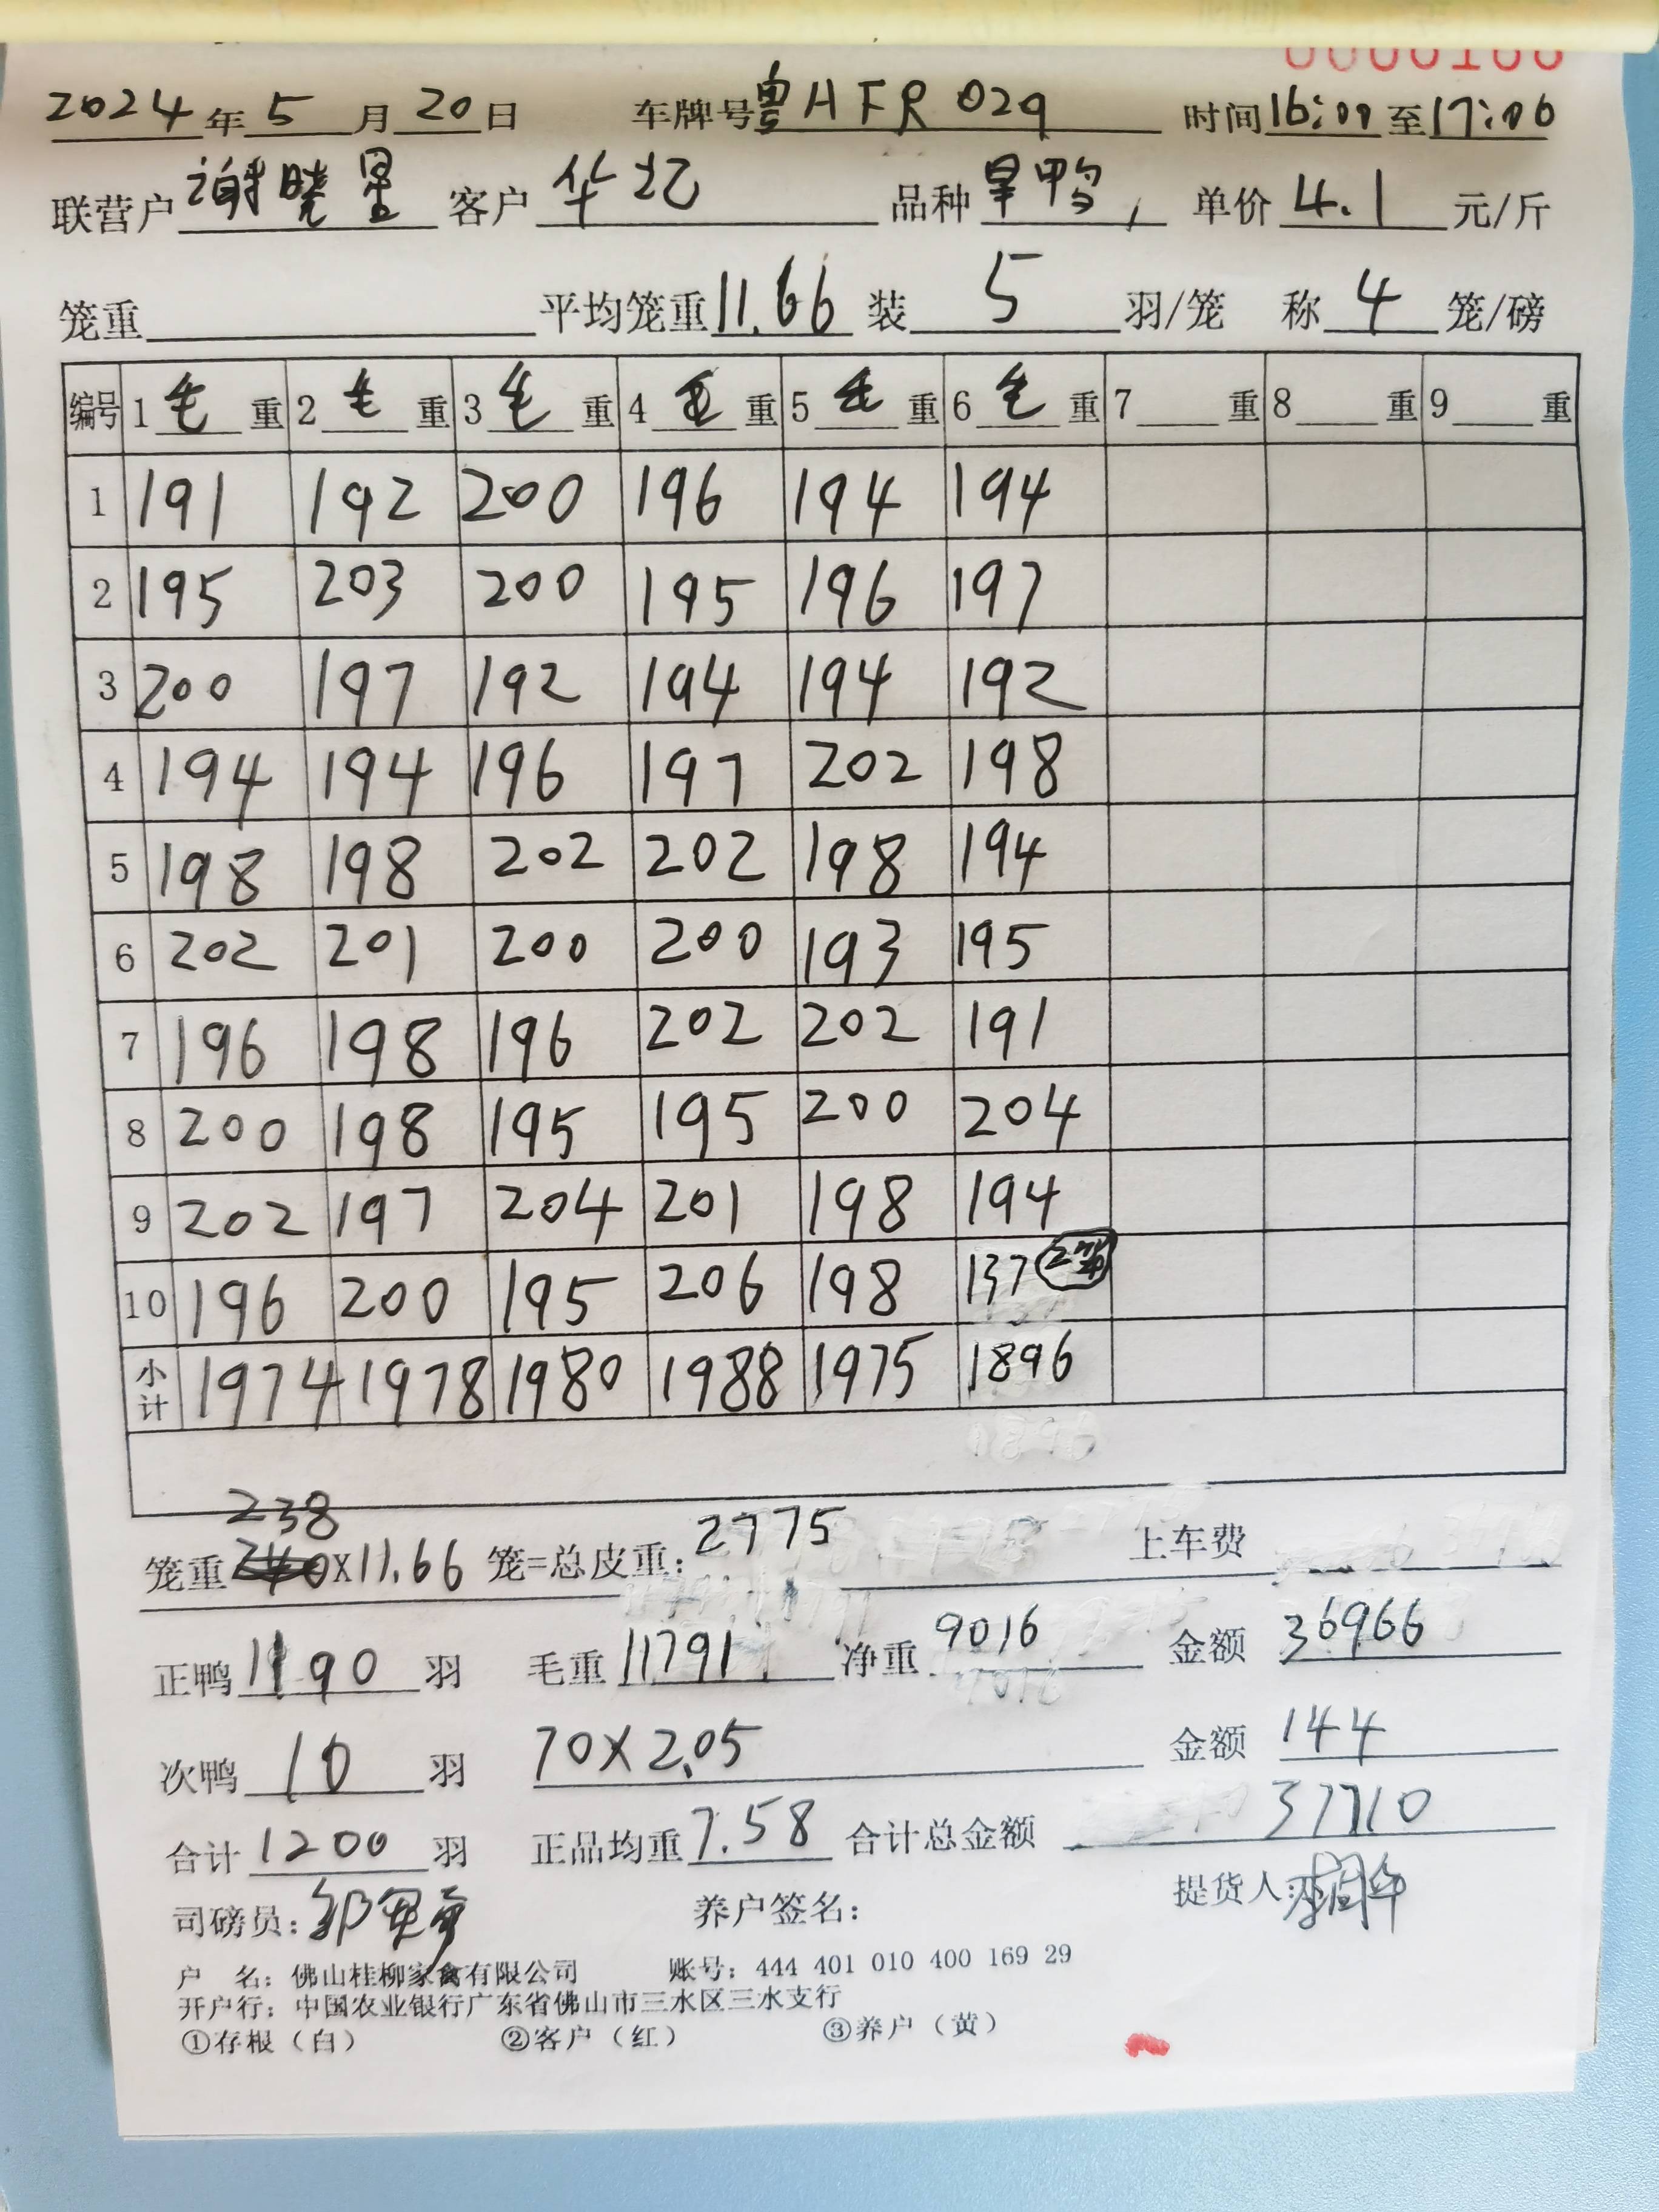 0000166
2024年5月20日 车牌号粤HFR029 时间16:00至17:00
联营户谢晓星 客户华记 品种旱鸭, 单价4.1元/斤
笼重 平均笼重11.66 装5羽/笼 称4笼/磅
编号 1毛重 2毛重 3毛重 4毛重 5毛重 6毛重 7重 8重 9重
1 191 192 200 196 194 194
2 195 203 200 195 196 197
3 200 197 192 194 194 192
4 194 194 196 197 202 198
5 198 198 202 202 198 194
6 202 201 200 200 193 195
7 196 198 196 202 202 191
8 200 198 195 195 200 204
9 202 197 204 201 198 194
10 196 200 195 206 198 137
小计 1974 1978 1980 1988 1975 1896
238
笼重240x11.66 笼=总皮重:2775 上车费
正鸭1190羽 毛重11791 净重9016 金额36966
次鸭10羽 70x2.05 金额144
合计1200羽 正品均重7.58 合计总金额37710
司磅员: 养户签名: 提货人:
户 名:佛山桂柳家禽有限公司 账号:444 401 010 400 169 29
开户行:中国农业银行广东省佛山市三水区三水支行
①存根(白) ②客户(红) ③养户(黄)